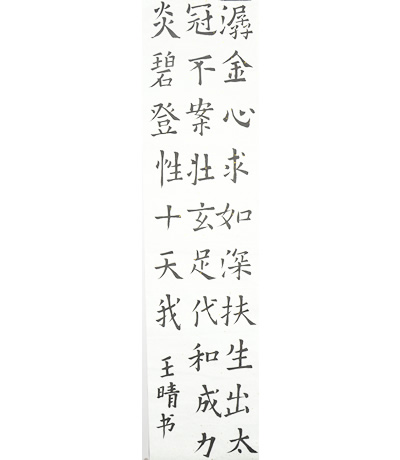 潺金心求如深扶生出太
冠不案壮玄足代和成力
炎碧登性十天我
王晴书